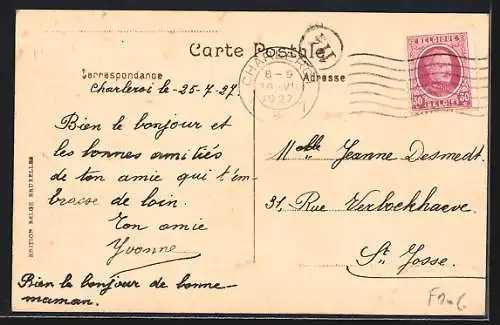 Carte Postale
Correspondance
Adresse
BELGIQUE
50 50
BELGIË
CHARLEROI
8-9
1927
Charleroi le - 25-7-27.
Bien le bonjour et
les bonnes amitiés
de ton amie qui t'em-
brasse de loin.
Ton amie
Yvonne
Bien le bonjour de bonne-
maman.
Melle Jeanne Desmedt.
31, Rue Verboekhaeve.
St Josse.
EDITION BELGE BRUXELLES